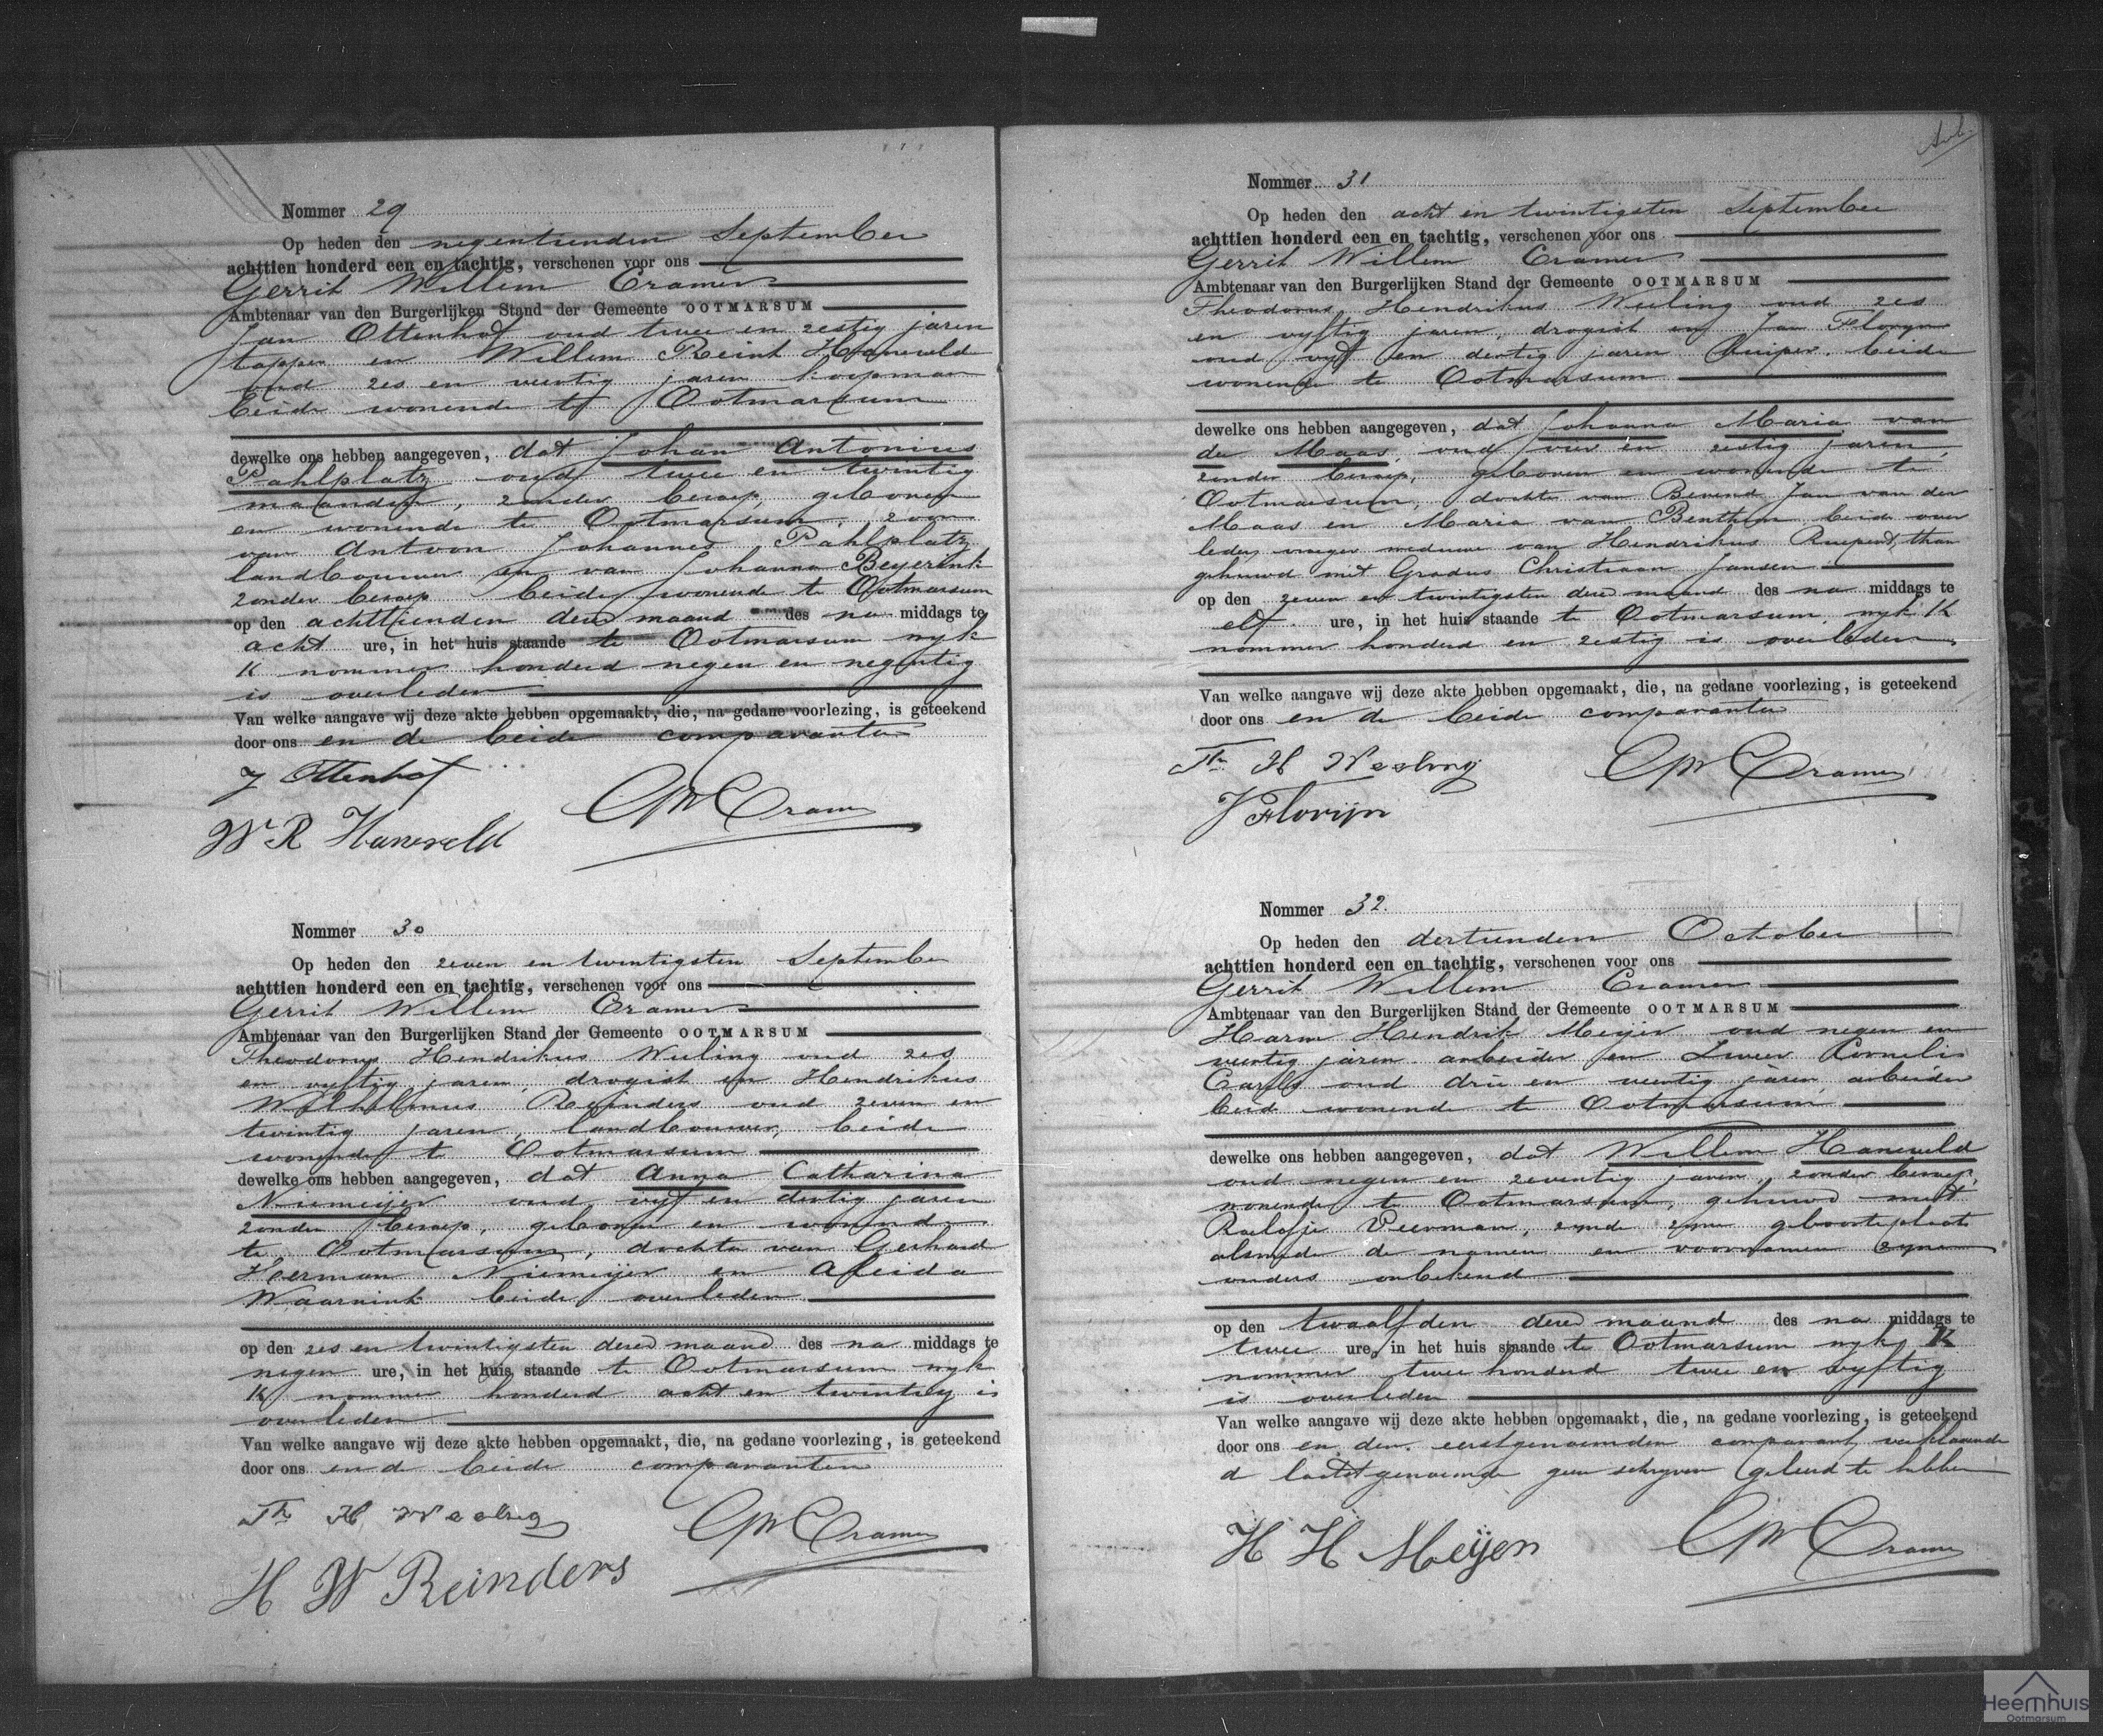 Nommer 29
Op heden den negentienden September
achttien honderd een en tachtig, verschenen voor ons
Gerrit Willem Cramer
Ambtenaar van den Burgerlijken Stand der Gemeente OOTMARSUM
Jan Ottenhof oud twee en zestig jaren
tapper en Willem Reint Haneveld
oud zes en veertig jaren koopman
beide wonende te Ootmarsum
dewelke ons hebben aangegeven, dat Johan Antonius
Pahlplatz oud twee en twintig
maanden, zonder beroep, geboren
en wonende te Ootmarsum, zoon
van Antoon Johannes Pahlplatz
landbouwer en van Johanna Beyerink
zonder beroep beide wonende te Ootmarsum
op den achttienden dezer maand des na middags te
acht ure, in het huis staande te Ootmarsum wyk
K nommer honderd negen en negentig
is overleden
Van welke aangave wij deze akte hebben opgemaakt, die, na gedane voorlezing, is geteekend
door ons en de beide comparanten
J Ottenhof
GW Cramer
W R Haneveld
Nommer 30
Op heden den zeven en twintigsten September
achttien honderd een en tachtig, verschenen voor ons
Gerrit Willem Cramer
Ambtenaar van den Burgerlijken Stand der Gemeente OOTMARSUM
Theodorus Hendrikus Weeling oud zes
en vyftig jaren, drogist en Hendrikus
Wilhelmus Reinders oud zeven en
twintig jaren, landbouwer, beide
wonende te Ootmarsum
dewelke ons hebben aangegeven, dat Anna Catharina
Niemeijer oud vyf en dertig jaren
zonder beroep, geboren en wonende
te Ootmarsum, dochter van Gerhard
Heerman Niemeijer en Aleida
Waarnink beide overleden
op den zes en twintigsten dezer maand des na middags te
negen ure, in het huis staande te Ootmarsum wyk
K nommer honderd acht en twintig is
overleden
Van welke aangave wij deze akte hebben opgemaakt, die, na gedane voorlezing, is geteekend
door ons en de beide comparanten
Th H Weeling
GW Cramer
H W Reinders
Nommer 31
Op heden den acht en twintigsten September
achttien honderd een en tachtig, verschenen voor ons
Gerrit Willem Cramer
Ambtenaar van den Burgerlijken Stand der Gemeente OOTMARSUM
Theodorus Hendrikus Weeling oud zes
en vyftig jaren, drogist en Jan Floryn
oud vyf en dertig jaren Kuiper, beide
wonende te Ootmarsum
dewelke ons hebben aangegeven, dat Johanna Maria van
der Maas, oud vier en zestig jaren,
zonder beroep, geboren en wonende te
Ootmarsum, dochter van Berend Jan van der
Maas en Maria van Benthem beide over
leden, vroeger weduwe van Hendrikus thans
gehuwd met Gradus Christiaan Jansen
op den zeven en twintigsten dezer maand des na middags te
elf ure, in het huis staande te Ootmarsum, wyk K
nommer honderd en zestig is overleden
Van welke aangave wij deze akte hebben opgemaakt, die, na gedane voorlezing, is geteekend
door ons en de beide comparanten
Th H Weeling
GW Cramer
J Florijn
Nommer 32
Op heden den dertienden October
achttien honderd een en tachtig, verschenen voor ons
Gerrit Willem Cramer
Ambtenaar van den Burgerlijken Stand der Gemeente OOTMARSUM
Harm Hendrik Meijer oud negen en
veertig jaren arbeider en Kornelis
Carels oud drie en veertig jaren arbeider
beide wonende te Ootmarsum
dewelke ons hebben aangegeven, dat Willem Haneveld
oud negen en zeventig jaren, zonder beroep,
wonende te Ootmarsum, gehuwd met
Roelofje Veerman, zynde zyne geboorteplaats
alsmede de namen en voornamen zyner
ouders onbekend
op den twaalfden dezer maand des na middags te
twee ure, in het huis staande te Ootmarsum wyk K
nommer twee honderd twee en vyftig
is overleden
Van welke aangave wij deze akte hebben opgemaakt, die, na gedane voorlezing, is geteekend
door ons en den eerstgenoemden comparant, verklarende
de laatstgenoemde geen schryven geleerd te hebben
H H Meijer
GW Cramer
Heemhuis
Ootmarsum